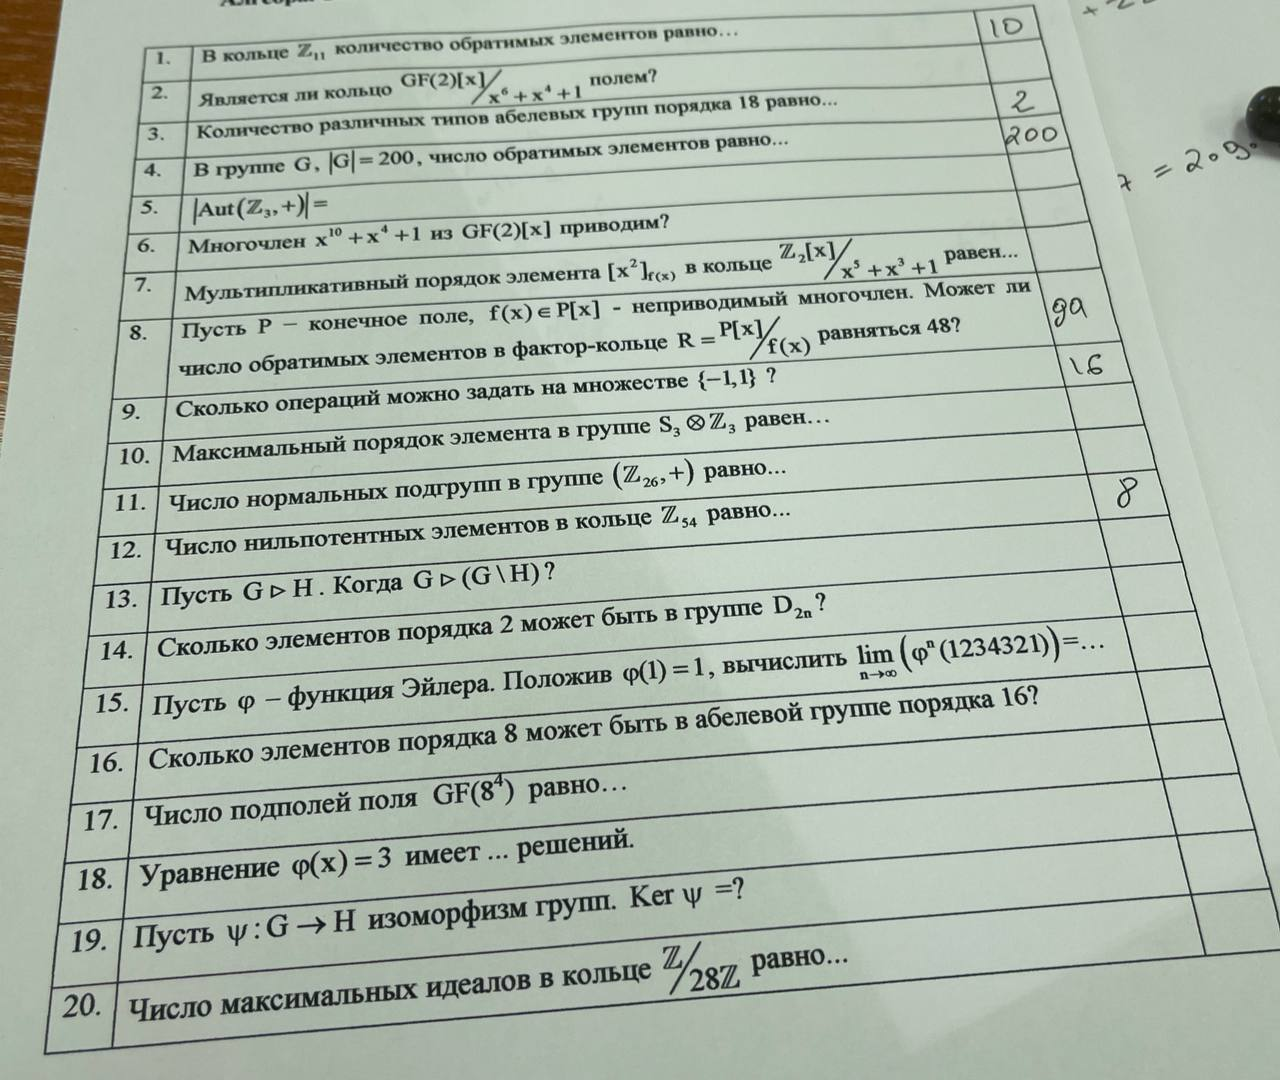 1. В кольце ℤ₁₁ количество обратимых элементов равно… 10
2. Является ли кольцо GF(2)[x]/x⁶ + x⁴ + 1 полем?
3. Количество различных типов абелевых групп порядка 18 равно… 2
4. В группе G, |G| = 200, число обратимых элементов равно… 200
5. |Aut(ℤ₃,+)| =
6. Многочлен x¹⁰ + x⁴ + 1 из GF(2)[x] приводим?
7. Мультипликативный порядок элемента [x²]f(x) в кольце ℤ₂[x]/x⁵ + x³ + 1 равен…
8. Пусть P – конечное поле, f(x) ∈ P[x] - неприводимый многочлен. Может ли
число обратимых элементов в фактор-кольце R = P[x]/f(x) равняться 48? да
9. Сколько операций можно задать на множестве {−1,1} ? 16
10. Максимальный порядок элемента в группе S₃ ⊗ ℤ₃ равен…
11. Число нормальных подгрупп в группе (ℤ₂₆,+) равно…
12. Число нильпотентных элементов в кольце ℤ₅₄ равно… 8
13. Пусть G ▷ H. Когда G ▷ (G \ H) ?
14. Сколько элементов порядка 2 может быть в группе D₂ₙ?
15. Пусть φ – функция Эйлера. Положив φ(1) = 1, вычислить lim n→∞ (φⁿ(1234321))=…
16. Сколько элементов порядка 8 может быть в абелевой группе порядка 16?
17. Число подполей поля GF(8⁴) равно…
18. Уравнение φ(x) = 3 имеет ... решений.
19. Пусть ψ : G → H изоморфизм групп. Ker ψ =?
20. Число максимальных идеалов в кольце ℤ/28ℤ равно…